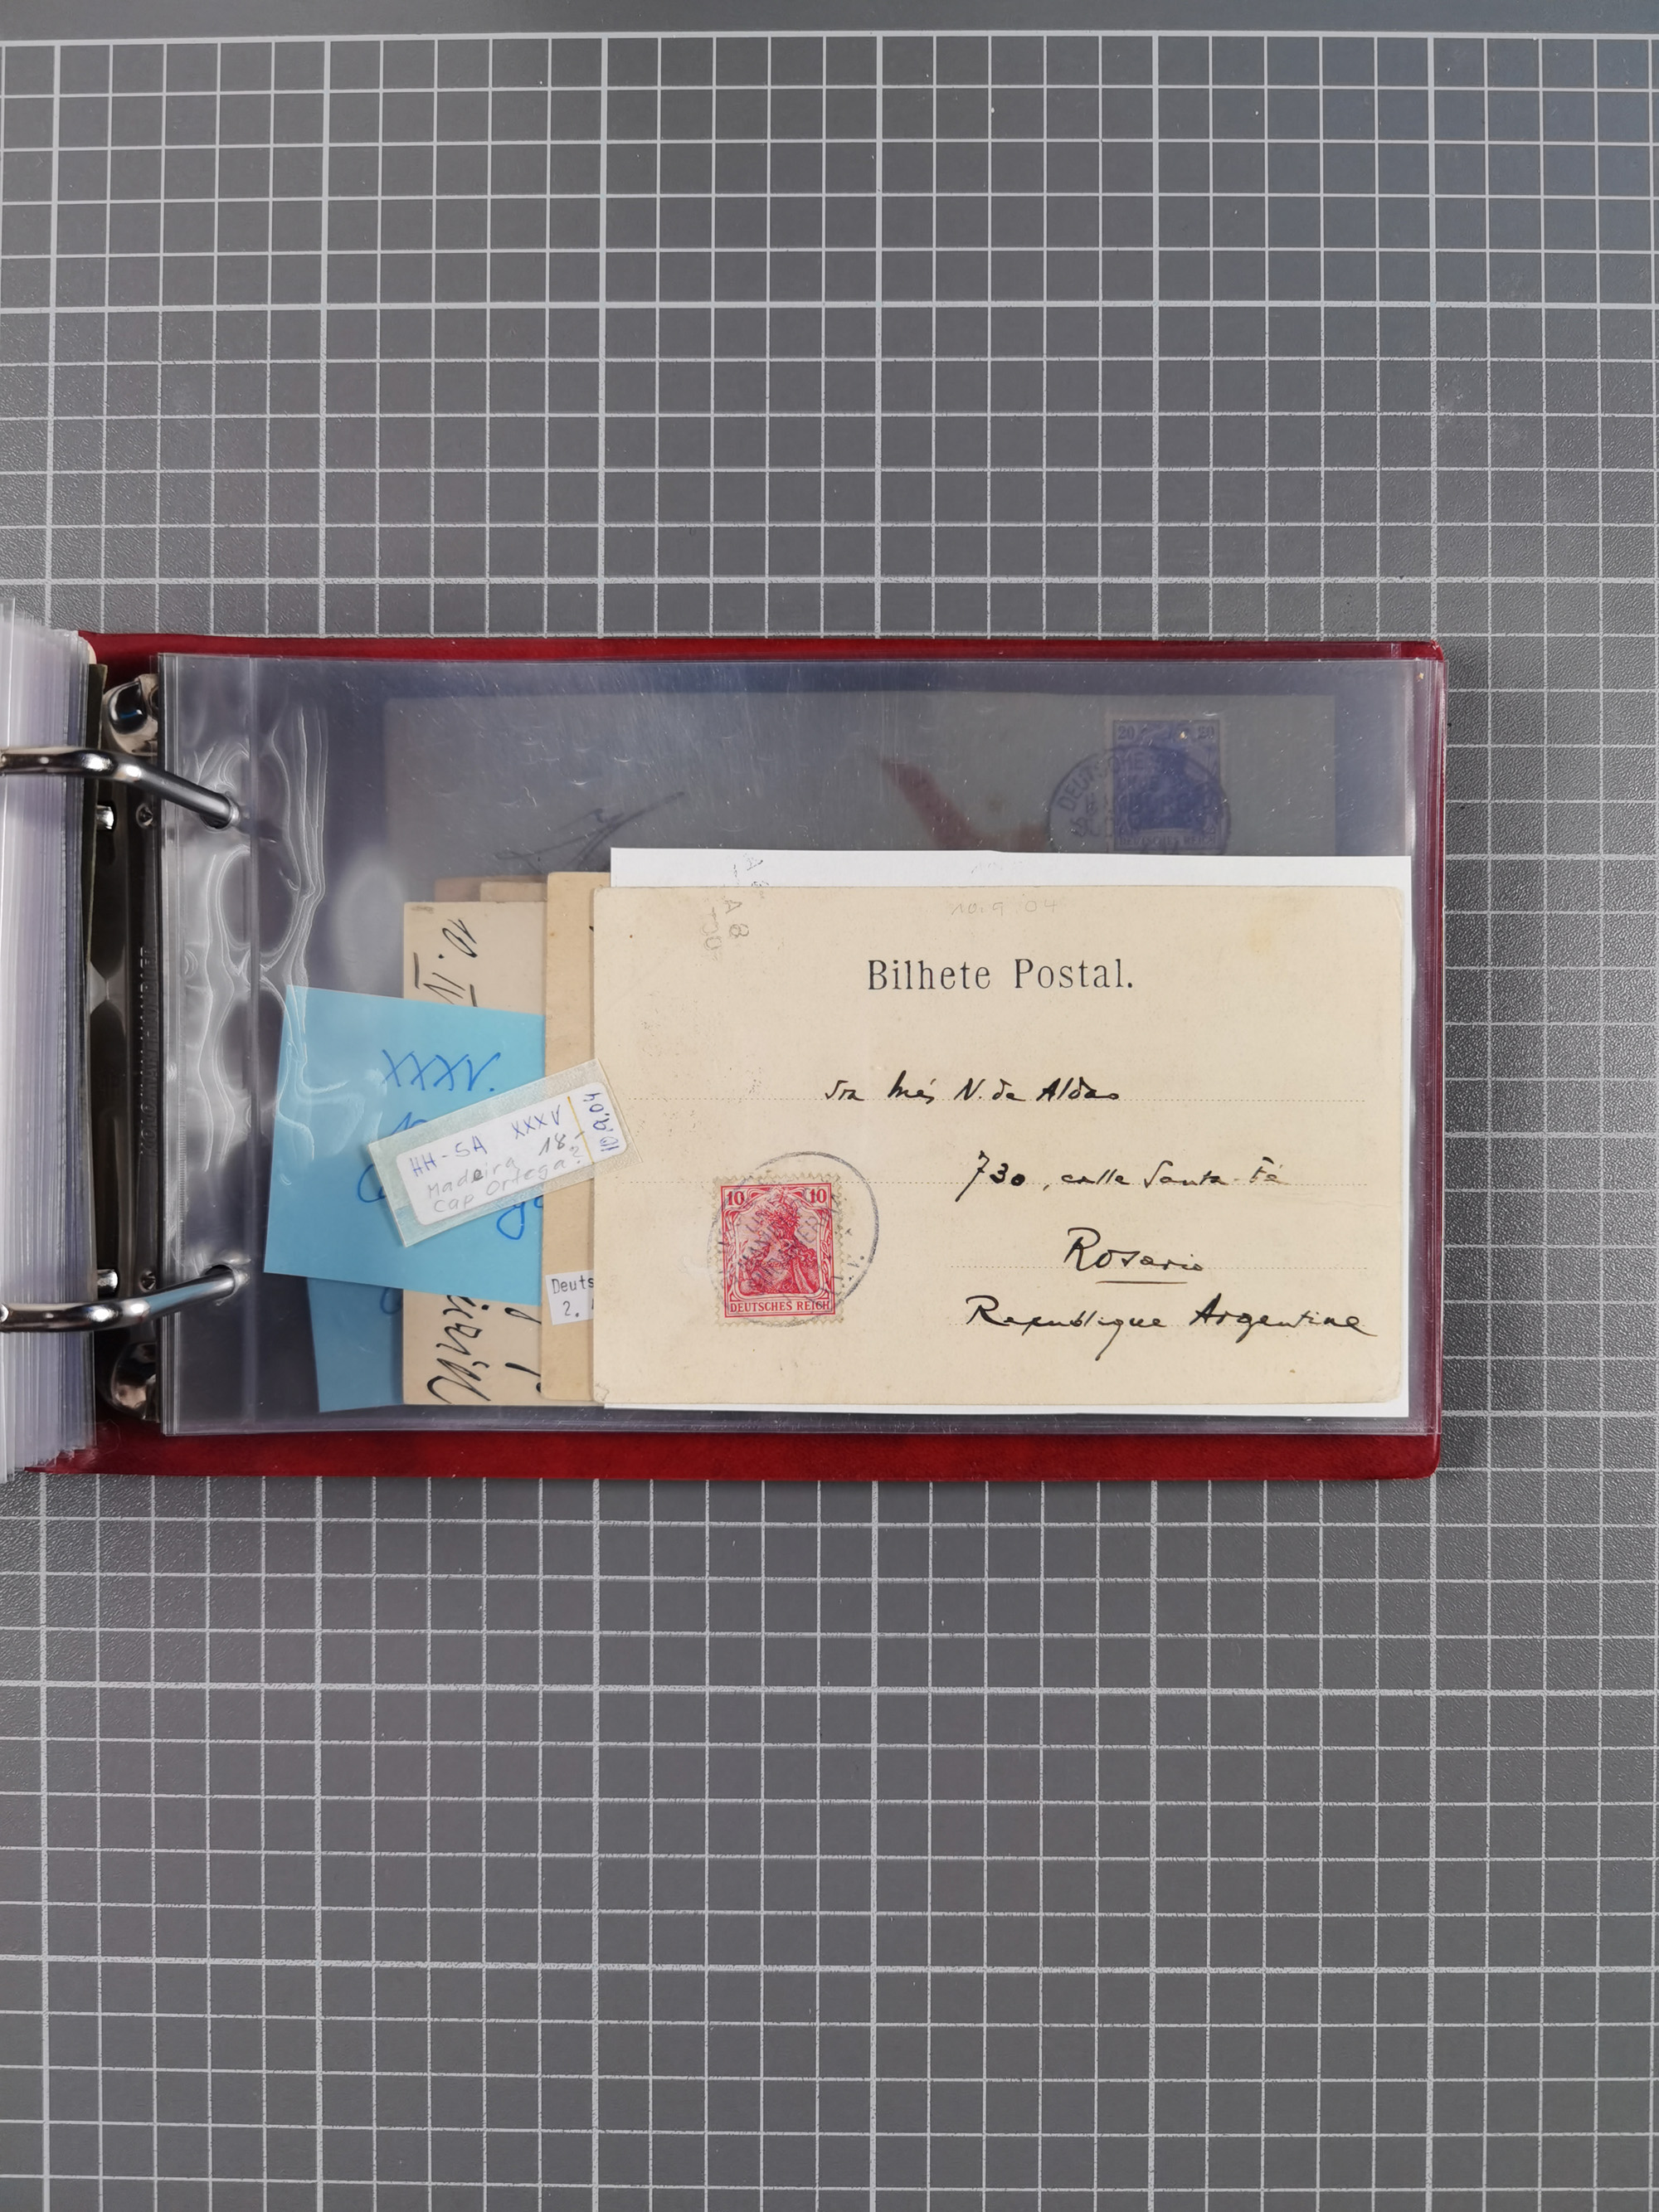 10.9.04
Bilhete Postal.
Sra Inés N. de Aldao
730, calle Santa-Fé
Rosario
Republique Argentine
10 10
DEUTSCHES REICH
HH-SA XXXV
Madeira 18,-
Cap Ortega?
10.9.04
XXXV.
10. IV
Deuts
2.
20 20
DEUTSCHE